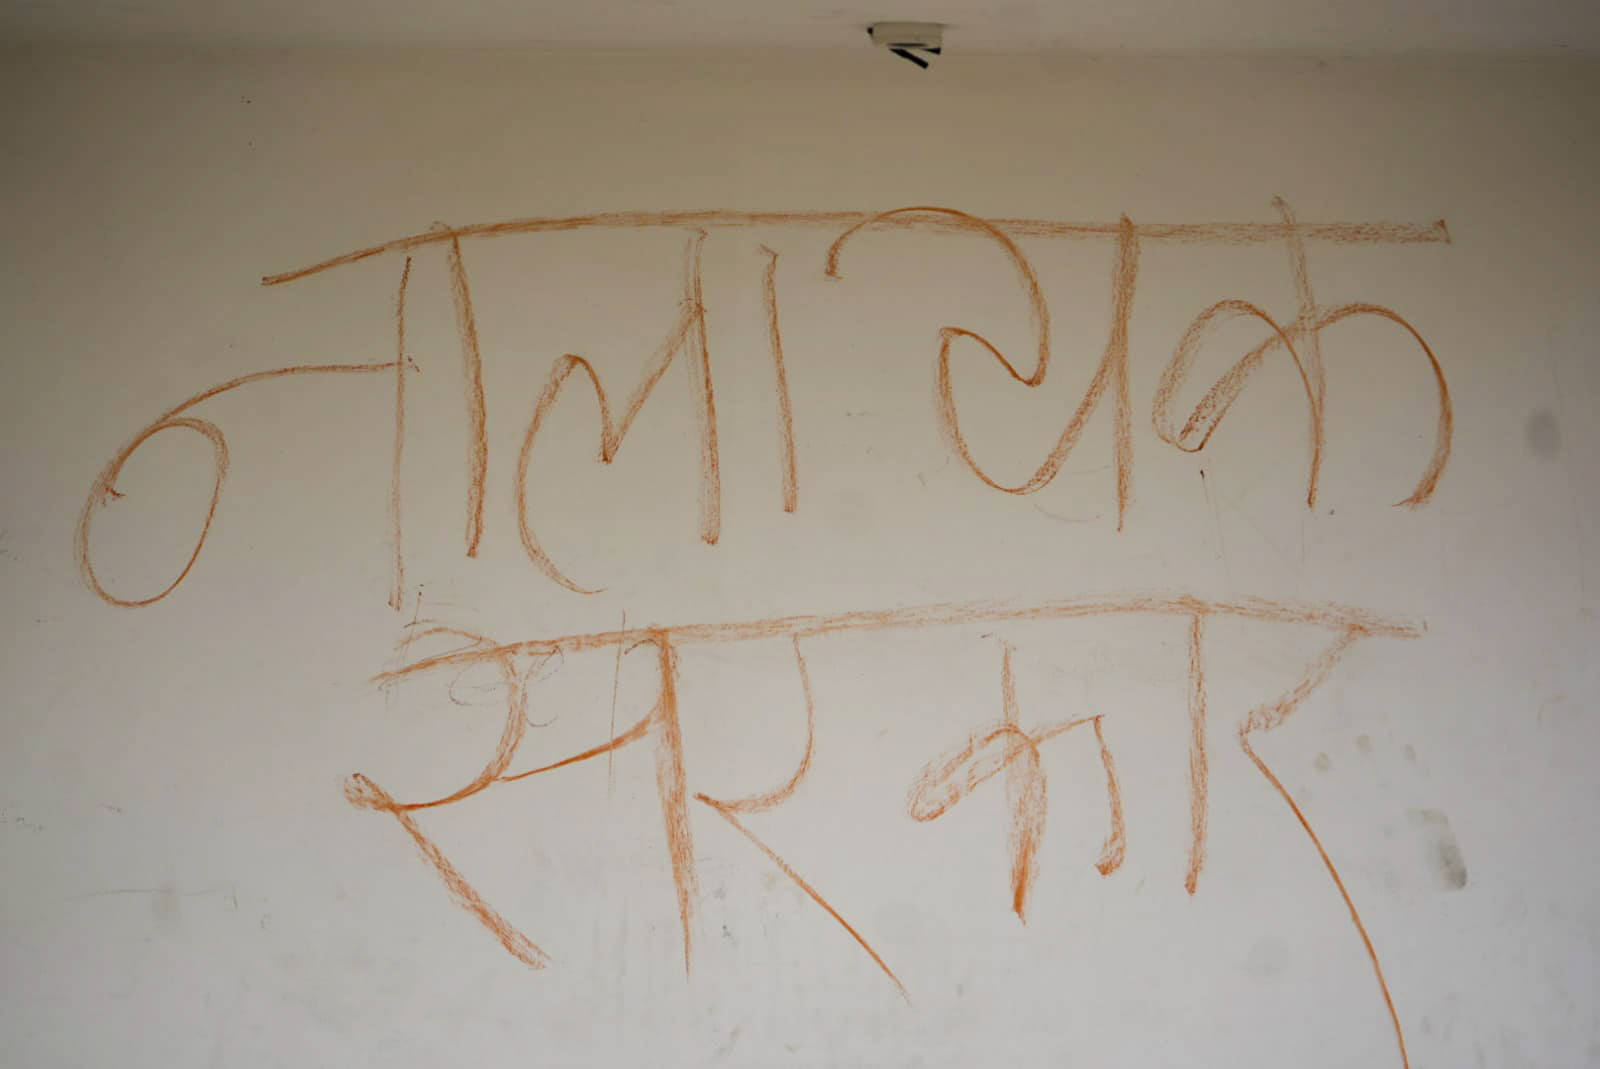 नालायक
सरकार